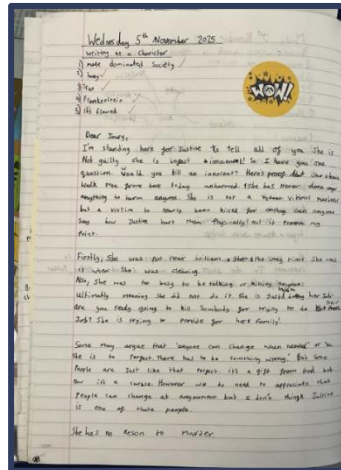 Wednesday 5th November 2025
writing as a Charicter
1) male dominated Society
2) busy
3) Far
4) Frankenstein
5) it's flawed
WOW!
Dear Jourg,
I'm standing here for Justice to tell all of you She is
Not guilty she is innocent! So I have you one
question. Would you kill an innocent? Here's proof that she should
Walk free from here today unharmed. She has Never done
anything to harm anyone. She is not a vicious monster
but a victim
say how Justice hurt them Physically!
Point.
Firstly, She was not near william & the only place She was
is where She was cleaning.
Also, She was far to busy to be talking or
Ultimatly meaning She did not do it. She is Just doing her Job!
are you really going to kill Sombody for trying to do their
Job? She is trying to Provide for her family!
Some may argue that 'anyone can change when needed' or 'but
She is to Perfect. There had to be something wrong.' But some
People are Just like that Perfect it's a gift from God but
for it's a curse. However we do need to appreciate that
People can change at anymoment but I don't think Justice
is one of those people.
She has no Reson to murder